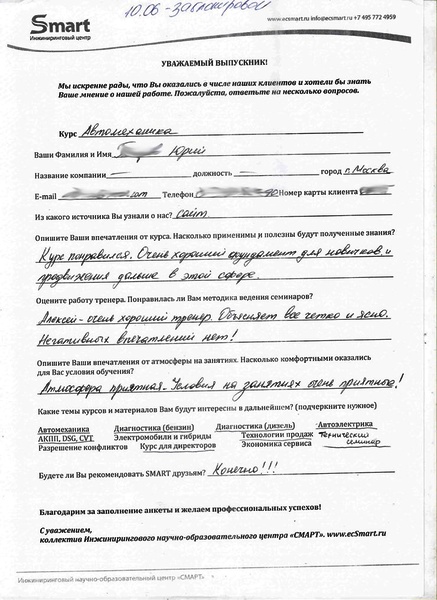 10.06 -
Smart
Инжиниринговый центр
www.ecsmart.ru info@ecsmart.ru +7 495 772 4959
УВАЖАЕМЫЙ ВЫПУСКНИК!
Мы искренне рады, что Вы оказались в числе наших клиентов и хотели бы знать
Ваше мнение о нашей работе. Пожалуйста, ответьте на несколько вопросов.
Курс Автомеханика
Ваши Фамилия и Имя Юрий
Название компании должность город г. Москва
E-mail Телефон Номер карты клиента
Из какого источника Вы узнали о нас? Сайт
Опишите Ваши впечатления от курса. Насколько применимы и полезны будут полученные знания?
Курс понравился. Очень хороший фундамент для новичков и
продвижения дальше в этой сфере.
Оцените работу тренера. Понравилась ли Вам методика ведения семинаров?
Алексей - очень хороший тренер. Объясняет все четко и ясно.
Негативных впечатлений нет!
Опишите Ваши впечатления от атмосферы на занятиях. Насколько комфортными оказались
для Вас условия обучения?
Атмосфера приятная. Условия на занятиях очень приятные!
Какие темы курсов и материалов Вам будут интересны в дальнейшем? (подчеркните нужное)
Автомеханика Диагностика (бензин) Диагностика (дизель) Автоэлектрика
АКПП, DSG, CVT Электромобили и гибриды Технологии продаж Технический
Разрешение конфликтов Курс для директоров Экономика сервиса семинар
Будете ли Вы рекомендовать SMART друзьям? Конечно!!!
Благодарим за заполнение анкеты и желаем профессиональных успехов!
С уважением,
коллектив Инжинирингового научно-образовательного центра «СМАРТ». www.ecSmart.ru
Инжиниринговый научно-образовательный центр «СМАРТ»